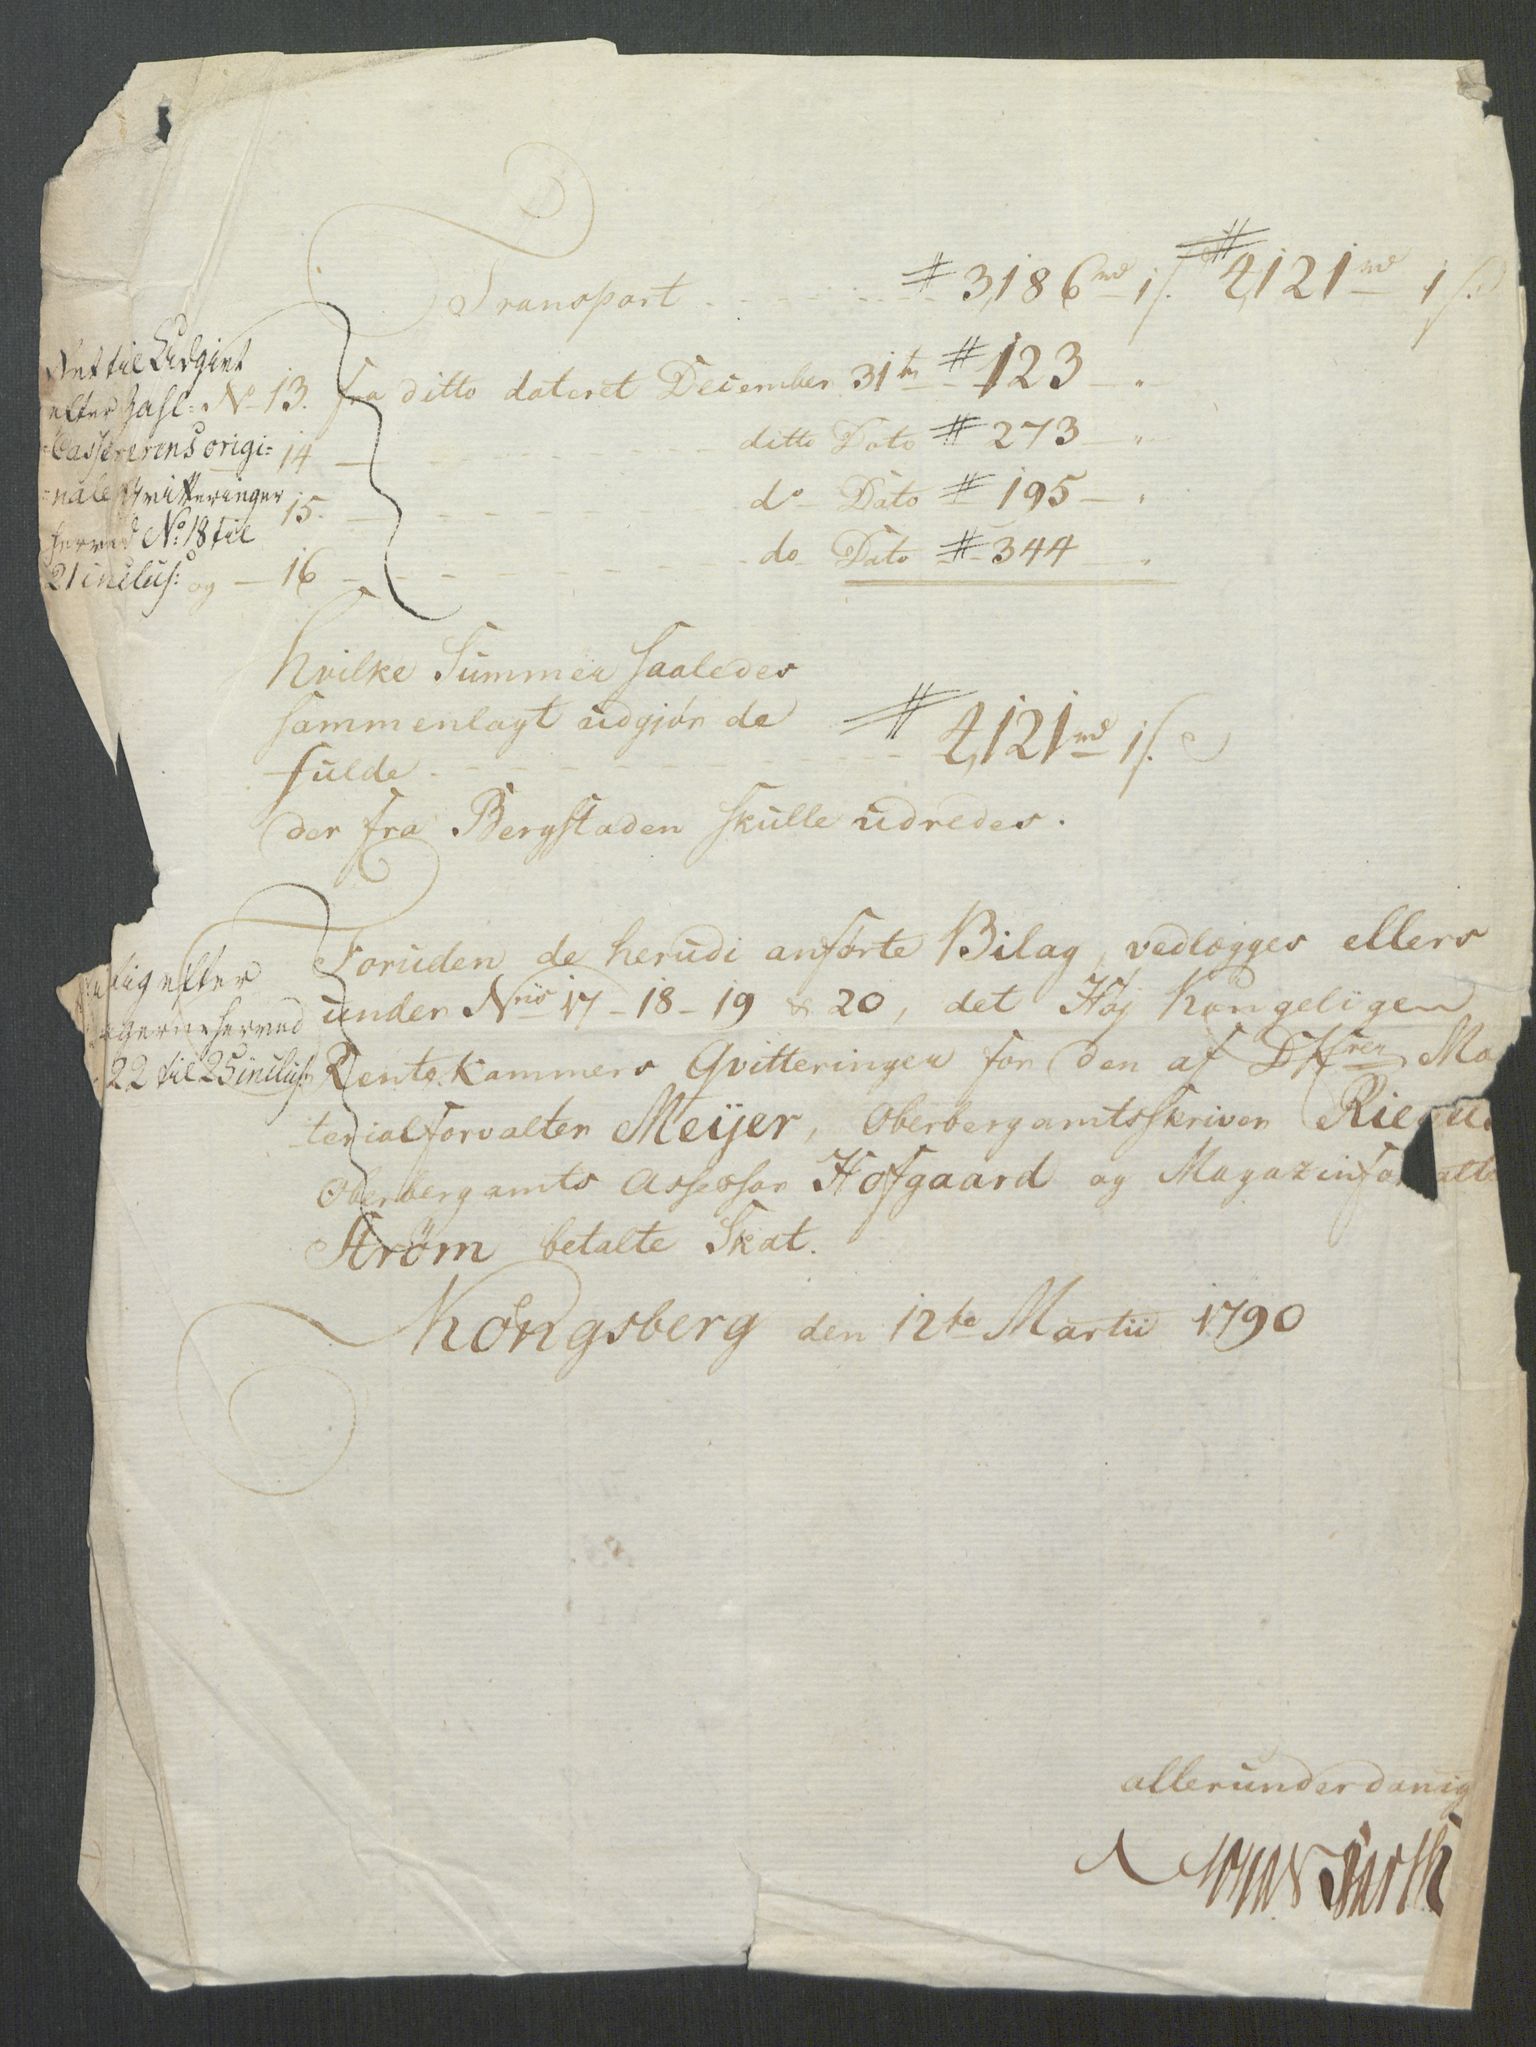 Transport - - - # 3,186 rd 1 s. # 4,121 rd 1 s.
ført til Udgivt
efter Zahl=
Casserens origi=
nale Qvitteringer
herved No: 18 til
21 inclus:
No 13. fra ditto dateret December 31te # 123 - "
14 - - - ditto Dato # 273 - "
15 - - - do Dato # 195 - "
og 16 - - - do Dato # 344 - "
hvilke Summer saaledes
sammenlagt udgjør de
fulde - - - # 4,121 rd 1 s.
der fra Bergstaden skulle udredes.
efter
herved
22 til 25 inclus:
Foruden de herudi anførte Bilag, vedlægges ellers
under Nris 17 - 18 - 19 & 20, det Høj Kongeligen
Rente Kammers Qvitteringer for den af DHrer Ma
terialforvalter Meÿer, Oberbergamtsskriver
Oberbergamts Assessor Hofgaard og Magazinfor
Strøm betalte Skat.
Kongsberg den 12te Martii 1790
allerunderdanig